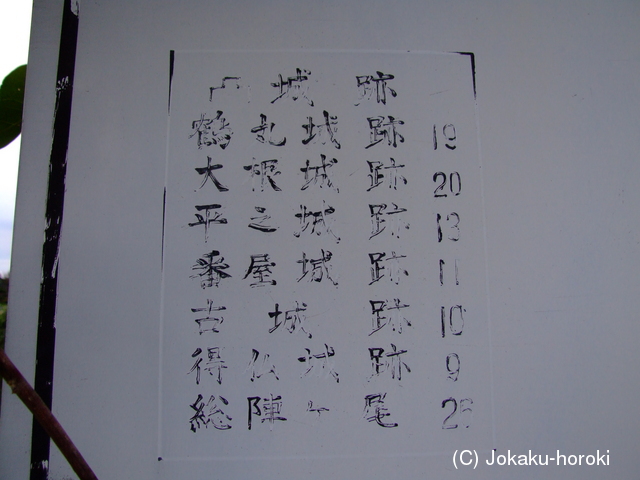 城 跡
鶴丸城跡 19
大根城跡 20
平之城城跡 13
番屋城跡 11
古城跡 10
得仏城跡 9
総陣 尾
(C) Jokaku-horoki